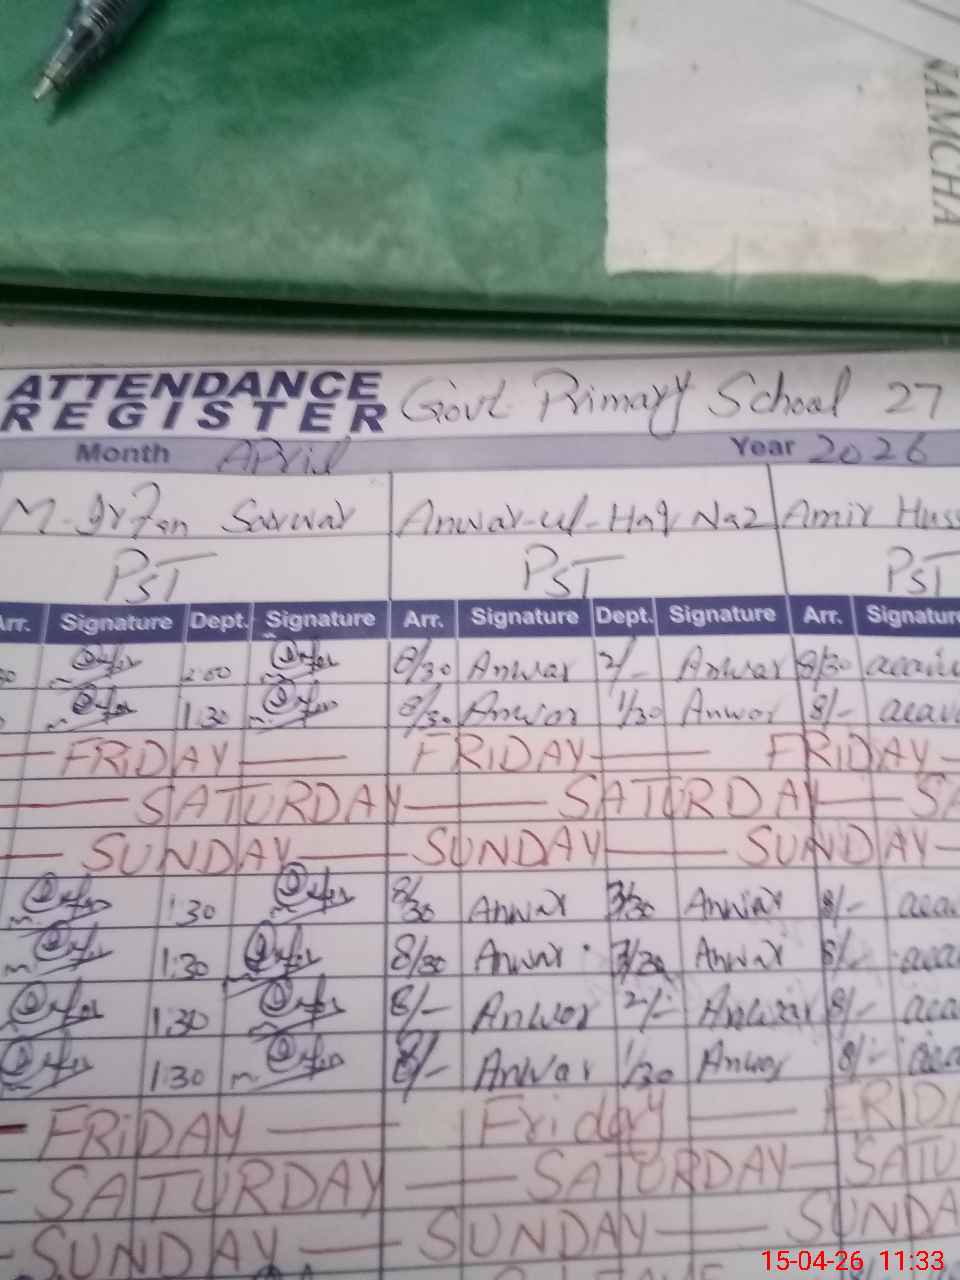 NAMCHA
ATTENDANCE REGISTER Govt Primary School 27
Month April Year 2026
M-Irfan Sarwar Anwar-ul-Haq Naz Amir Huss
PST PST PST
Arr. Signature Dept. Signature Arr. Signature Dept. Signature Arr. Signature
2:00 8/30 Anwar 2/- Anwar 8/30
1:30 8/30 Anwar 1/30 Anwar 8/-
FRIDAY FRIDAY FRIDAY
SATURDAY SATURDAY SA
SUNDAY SUNDAY SUNDAY
1:30 8/30 Anwar Anwar 8/-
1:30 8/30 Anwar Anwar 8/-
1:30 8/- Anwar 2/- Anwar 8/-
1:30 8/- Anwar 1/30 Anwar 8/-
FRIDAY Friday FRIDA
SATURDAY SATURDAY SATU
SUNDAY SUNDAY SUNDA
15-04-26 11:33